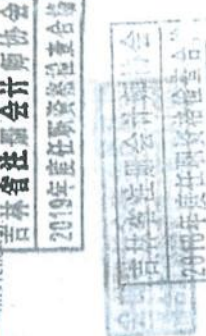 吉林省注册会计师协会
2019年度任职资格检查合格
吉林省注册会计师协会
年度任职资格检查合